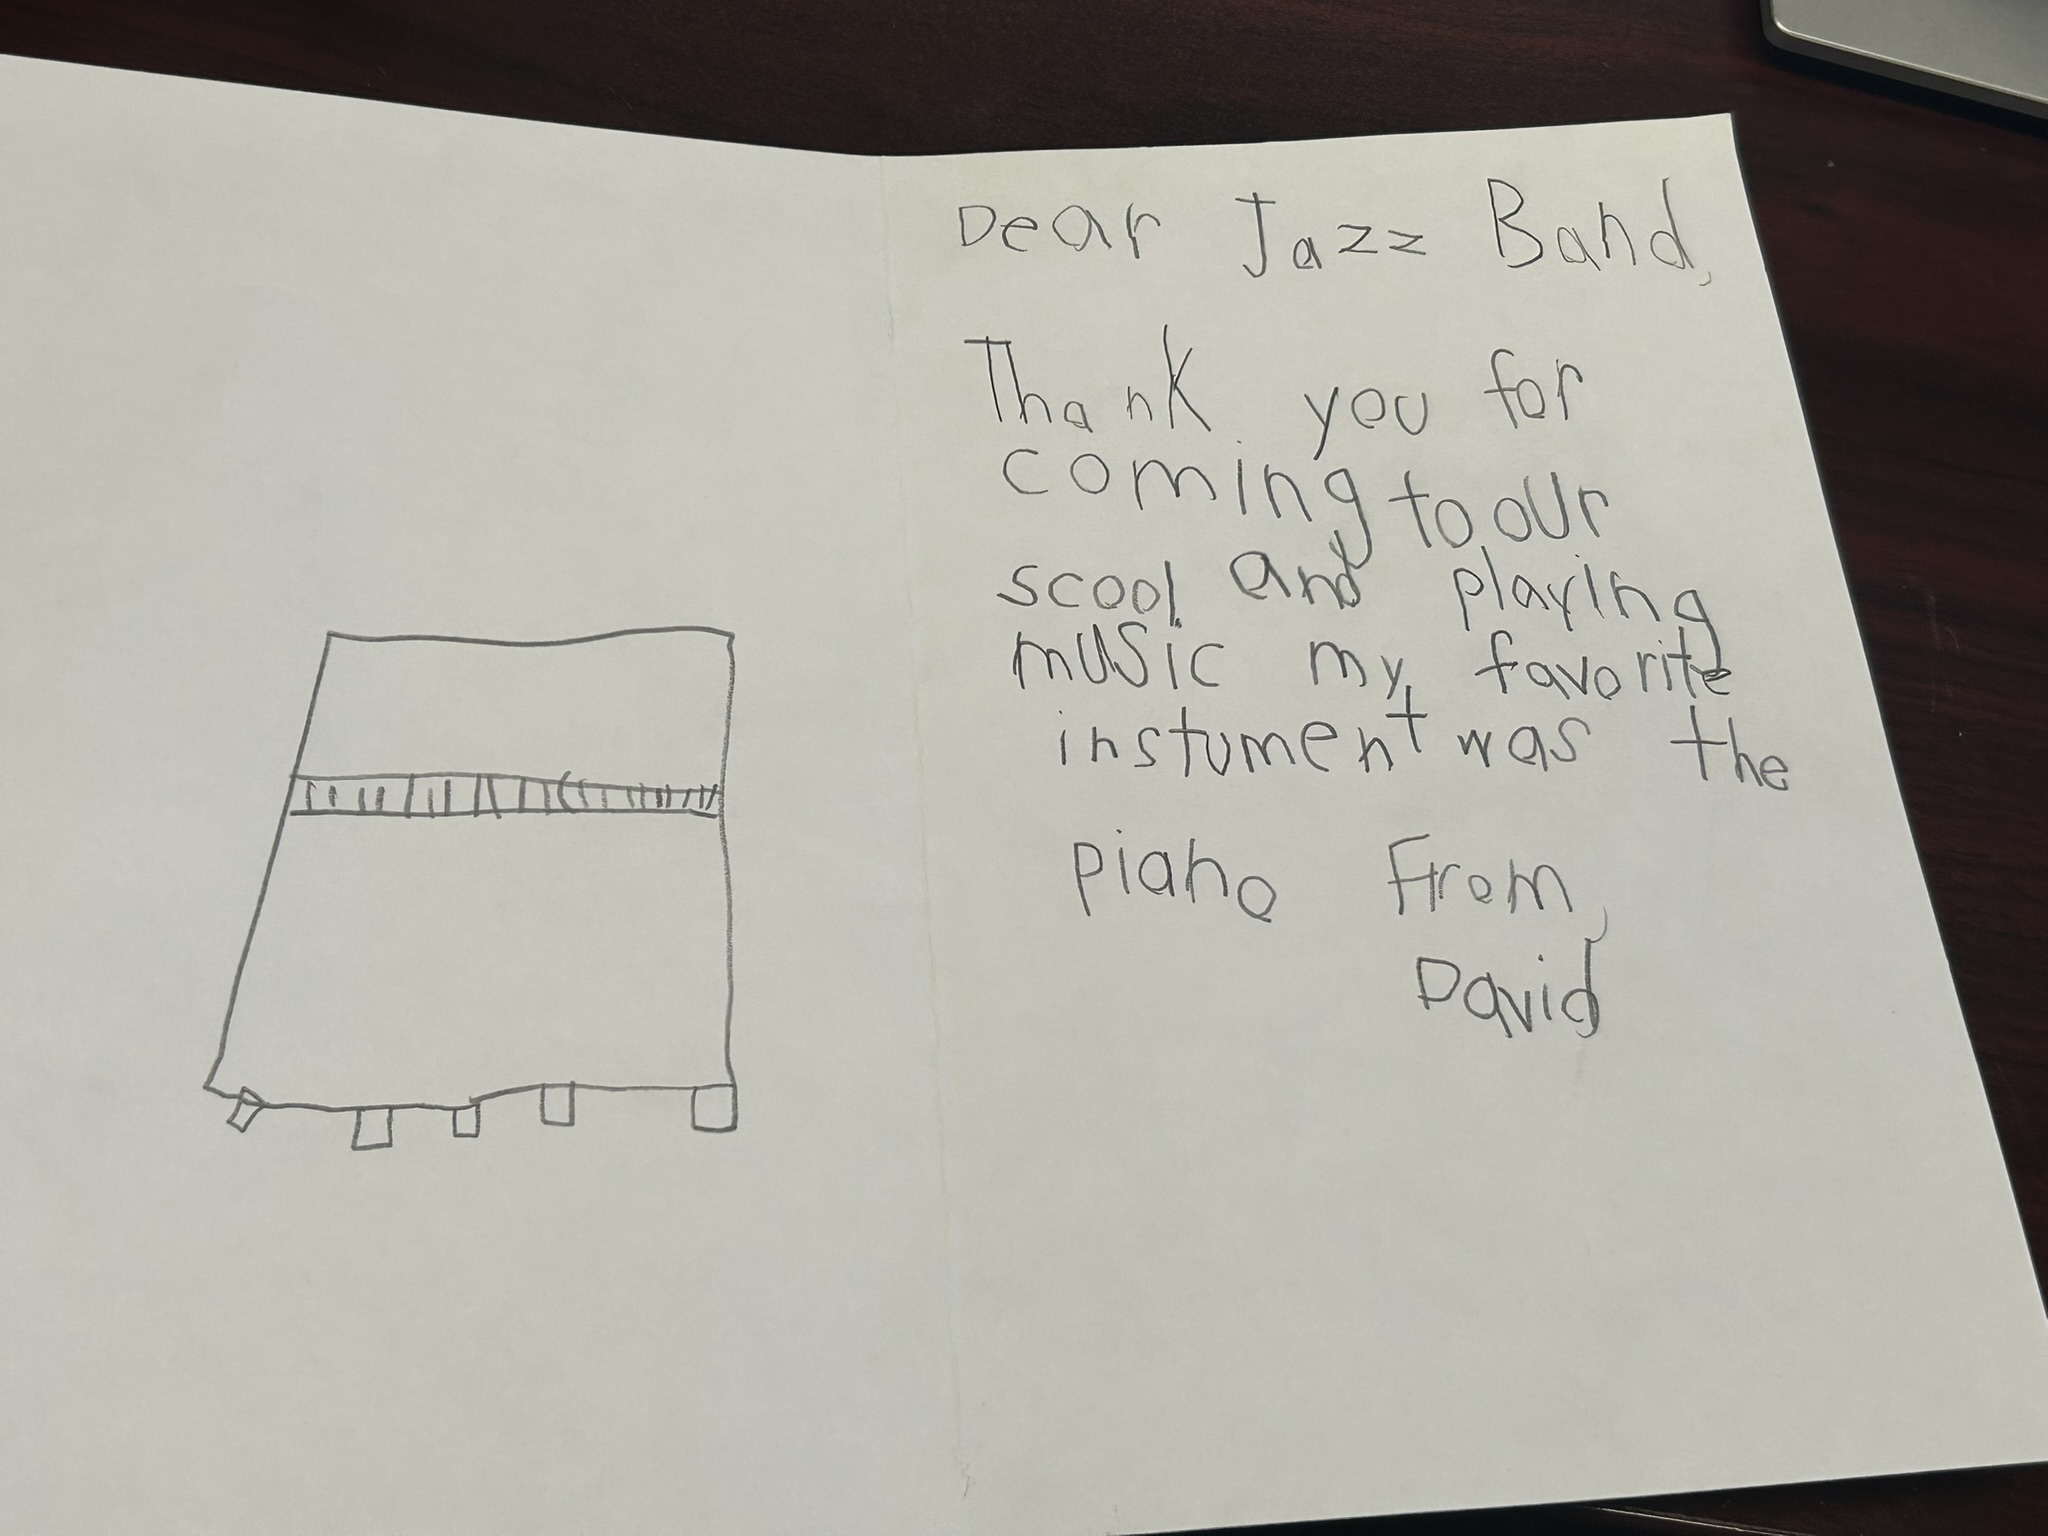 Dear Jazz Band,
Thank you for
coming to our
scool and playing
music my favorite
instument was the
piano From,
David